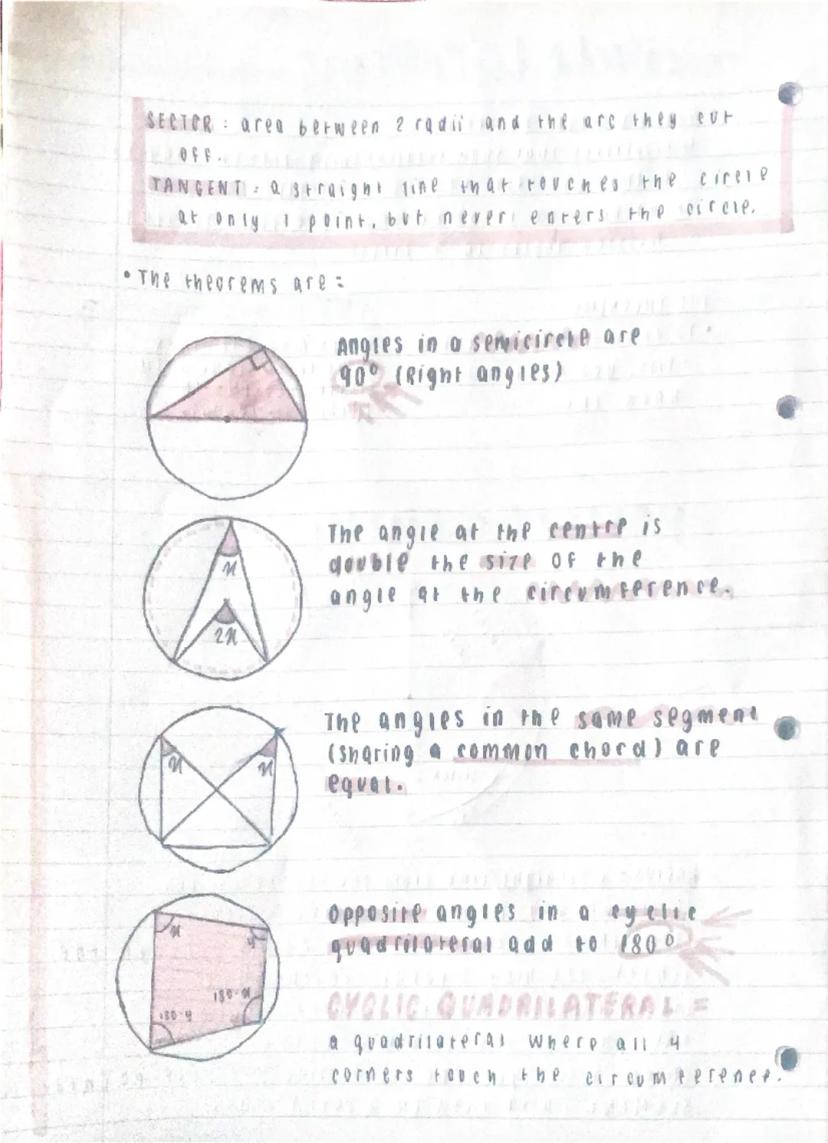 SECTOR : area between 2 radii and the arc they cut
off.
TANGENT : a straight line that touches the circle
at only 1 point, but never enters the circle.
• The theorems are :
Angles in a semicircle are
90° (Right angles)
The angle at the centre is
double the size of the
angle at the circumference.
x
2x
The angles in the same segment
(sharing a common chord) are
equal.
x x
Opposite angles in a cyclic
quadrilateral add to 180°
x y
180-x
180-y
CYCLIC QUADRILATERAL =
a quadrilateral where all 4
corners touch the circumference.